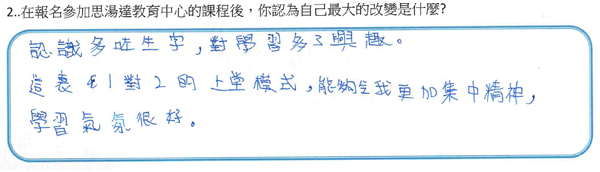 2..在報名參加思湯達教育中心的課程後，你認為自己最大的改變是什麼?
認識多咗生字，對學習多了興趣。
這裏的1對2的上堂模式，能夠令我更加集中精神，
學習氣氛很好。